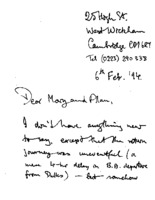 25 High St.
West Wickham
Cambridge CB1 6RY
Tel (0223) 290 538
6th Feb. '94
Dear Mary and Allen,
I don't have anything new
to say, except that the return
journey was uneventful (a
mere 4-hr delay on B.A. departure
from Dulles) - but somehow